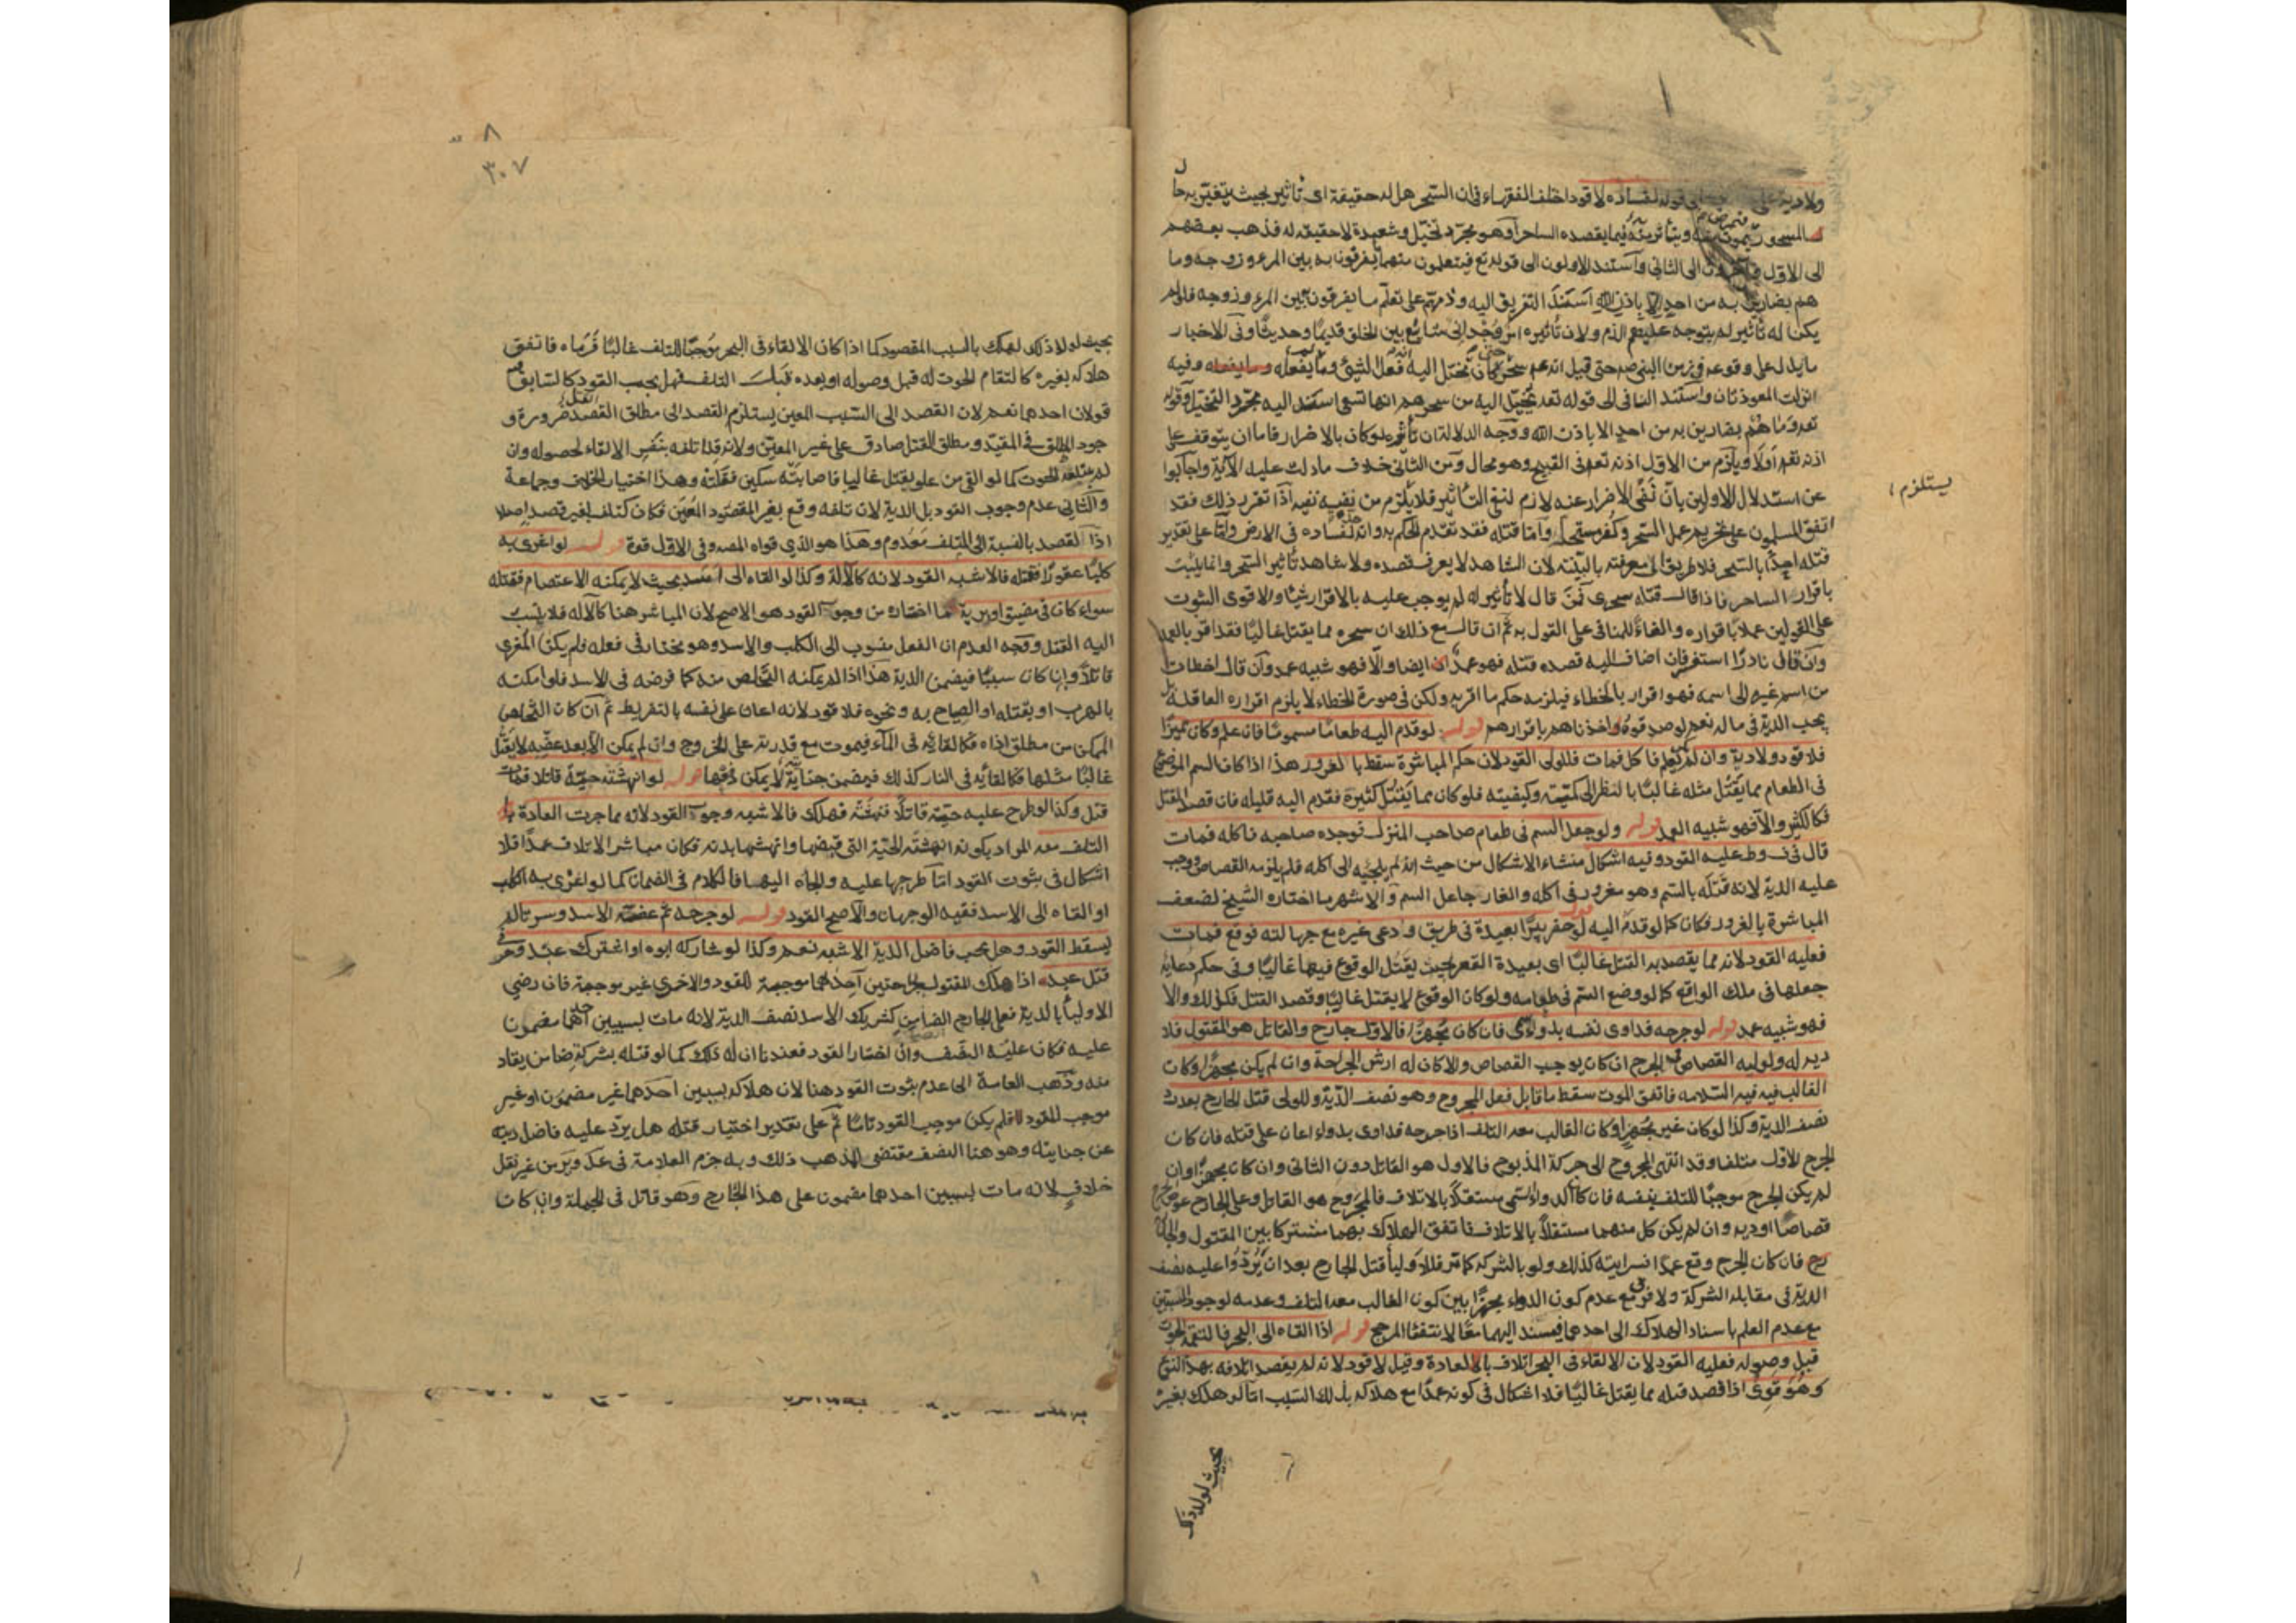 ولا دية على قوله لفساده لا قود اختلف الفقهاء فى ان السحر هل له حقيقة اى تأثير بحيث يتغير به حال
المسحور فيموت ويتأثر فيما يقصده الساحر أو هو مجرد تخيل وشعبدة لا حقيقة له فذهب بعضهم
الى الاول الى الثانى واستند الاولون الى قوله تع فيتعلمون منهما ما يفرقون به بين المرء وزوجه وما
هم بضارين به من احد الا باذن الله اسند التفريق اليه وذمهم على تعلم ما يفرقون بين المرء وزوجه فلو لم
يكن له تأثير لم يتوجه عليهم الذم ولان تأثيره امر وجدانى شايع بين الخلق قديما وحديثا وفى الاخبار
ما يدل على وقوعه فى زمن النبى صم حتى قيل انه عم سحر حتى كان يخيل اليه انه فعل الشئ وما يفعله وفيه
انزلت المعوذتان واستند الثانى الى قوله تعه يخيل اليه من سحرهم انها تسعى اسند اليه مجرد التخيل وقوله
تعه وما هم بضارين به من احد الا باذن الله ووجه الدلالة ان تأثيره لو كان بالاضرار فاما ان يتوقف على
اذنه تعه أو لا ويلزم من الاول اذنه تعه فى القبيح وهو محال ومن الثانى خلاف ما دلت عليه الآية واجابوا
يستلزم
عن استدلال الاولين بأن نفى الاضرار عنه لازم لنفى التأثير فلا يلزم من نفيه نفيه اذا تقرر ذلك فقد
اتفق المسلمون على تحريم عمل السحر وكفر مستحله وأما قتله فقد تقدم الحكم به وانه لفساده فى الارض وأما على تقدير
قتله احدا بالسحر فلا طريق الى معرفته بالبينة لان الشاهد لا يعرف قصده ولا يشاهد تأثير السحر وانما يثبت
باقرار الساحر فاذا قال قتلته بسحرى فمن قال لا تأثير له لم يوجب عليه بالاقرار شيئا والاقوى الثبوت
على القولين عملا باقراره والغاء للمنافى على القول به ثم ان قال مع ذلك ان سحره مما يقتل غالبا فقد اقر بالعمد
وان قال نادرا استفسر فان اضاف اليه قصده قتله فهو عمد ايضا والا فهو شبيه عمد وان قال اخطات
من اسم غيره الى اسمه فهو اقرار بالخطاء فيلزمه حكم ما اقر به ولكن فى صورة الخطاء لا يلزم اقراره العاقلة بل
يجب الدية فى ماله نعم لو صدقوه واخذناهم باقرارهم قوله لو قدم اليه طعاما مسموما فان علم وكان مميزا
فلا قود ولا دية وان لم يعلم فاكل فمات فللولى القود لان حكم المباشرة سقط بالغرور هذا اذا كان السم الموضوع
فى الطعام مما يقتل مثله غالبا بالنظر الى كميته وكيفيته فلو كان مما يقتل كثيره فقدم اليه قليله فان قصد القتل
فكالكثير والا فهو شبيه العمد قوله ولو جعل السم فى طعام صاحب المنزل فوجده صاحبه فاكله فمات
قال فى ف وط عليه القود وفيه اشكال منشاء الاشكال من حيث انه لم يلجئه الى اكله فلم يلزمه القصاص ووجب
عليه الدية لانه قتله بالسم وهو مغرور فى اكله والغار جاعل السم والاشهر ما اختاره الشيخ لضعف
المباشرة بالغرور فكان كما لو قدم اليه قوله لو حفر بئرا بعيدة فى طريق ودعى غيره مع جهالته فوقع فمات
فعليه القود لانه مما يقصد به القتل غالبا اى بعيدة القعر بحيث يقتل الوقوع فيها غالبا وفى حكم دعائه
جعلها فى ملك الواقع كما لو وضع السم فى طعامه ولو كان الوقوع لا يقتل غالبا وقصد القتل فكذلك والا
فهو شبيه عمد قوله لو جرحه فداوى نفسه بدواء سمى فان كان مجهزا فالاول جارح والقاتل هو المقتول فلا
ديه له ولوليه القصاص فى الجرح ان كان يوجب القصاص والا كان له ارش الجراحة وان لم يكن مجهزا وكان
الغالب فيه السلامه فاتفق الموت سقط ما قابل فعل المجروح وهو نصف الدية وللولى قتل الجارح بعد رد
نصف الدية وكذا لو كان غير مجهز وكان الغالب معه التلف اذا جرحه فداوى بدواء اعان على قتله فان كان
الجرح الاول متلفا وقد انتهى المجروح الى حركة المذبوح فالاول هو القاتل دون الثانى وان كان مجهزا وان
لم يكن الجرح موجبا للتلف بنفسه فان كان الدواء السمى مستقلا بالاتلاف فالمجروح هو القاتل وعلى الجارح عوض الجرح
قصاصا او دية وان لم يكن كل منهما مستقلا بالاتلاف فاتفق الهلاك بهما مشتركا بين المقتول والجا
رح فان كان الجرح وقع عمدا فسرايته كذلك ولو بالشركه كما مر فللاولياء قتل الجارح بعد ان يردوا عليه نصف
الدية فى مقابلة الشركة ولا فرق مع عدم كون الدواء مجهزا بين كون الغالب معه التلف وعدمه لوجود السببين
مع عدم العلم باسناد الهلاك الى احدهما فيسند اليهما معا لانتفاء المرجح قوله اذا القاه الى البحر فالتقمه الحوت
قبل وصوله فعليه القود لان الالقاء فى البحر اتلاف بالعادة وقيل لا قود لانه لم يقصد اتلافه بهذا النوع
وهو قوى اذا قصد قتله مما يقتل غالبا فلا اشكال فى كونه عمدا مع هلاكه بذلك السبب اما لو هلك بغيره
بحيث لولا ذلك
٨
٣٠٧
بحيث لولا ذلك لهلك بالسبب المقصود كما اذا كان الالقاء فى البحر موجبا للتلف غالبا فرماه فاتفق
هلاكه بغيره كالتقام الحوت له قبل وصوله او بعده قبل التلف فهل يجب القود كالسابق فيه
قولان احدهما نعم لان القصد الى السبب المعين يستلزم القصد الى مطلق القتل ضرورة و
جود المطلق فى المقيد ومطلق القتل صادق على غير المعين ولانه قد اتلفه بنفس الالقاء لحصوله وان
لم يبتلعه الحوت كما لو القى من علو يقتل غالبا فاصابته سكين فقتلته وهذا اختيار الخلاف وجماعة
والثانى عدم وجوب القود بل الدية لان تلفه وقع بغير المقصود المعين فكان كتلف بغير قصد اصلا
اذ القصد بالنسبة الى المتلف معدوم وهذا هو الذي قواه المصه وفى الاول قوة قوله لو اغرى به
كلبا عقورا فقتله فالاشبه القود لانه كالآلة وكذا لو القاه الى اسد بحيث لا يمكنه الاعتصام فقتله
سواء كان فى مضيق او برية ما اختاره من وجوب القود هو الاصح لان المباشر هنا كالآله فلا ينسب
اليه القتل ووجه العدم ان الفعل منسوب الى الكلب والاسد وهو مختار فى فعله فلم يكن المغرى
قاتلا وان كان سببا فيضمن الدية هذا اذا لم يمكنه التخلص منه كما فرضه فى الاسد فلو امكنه
بالهرب او بقتله او الصياح به ونحوه فلا قود لانه اعان على نفسه بالتفريط ثم ان كان التخلص
الممكن من مطلق اذاه فكالقائه فى الماء فيموت مع قدرته على الخروج وان لم يمكن الا بعد عضه لا يقتل
غالبا مثلها فكالقائه فى النار كذلك فيضمن جناية لا يمكن دفعها قوله لو انهشته حية قاتلا فمات
قتل وكذا لو طرح عليه حية قاتلا فنهشته فهلك فالاشبه وجوب القود لانه مما جرت العادة با
التلف معه المراد بكونه انهشته الحية التى قبضها وانهشها بدنه فكان مباشر الاتلاف عمدا فلا
اشكال فى ثبوت القود اما طرحها عليه والجاه اليها فالكلام فى الضمان كما لو اغرى به الكلب
او القاه الى الاسد ففيه الوجهان والاصح القود قوله لو جرحه ثم عضه الاسد وسرتا لم
يسقط القود وهل يجب فاضل الدية الاشبه نعم وكذا لو شاركه ابوه او اشترك عبد وحر فى
قتل عبد اذا هلك المقتول بجراحتين احدهما موجبة للقود والاخرى غير موجبة فان رضي
الاولياء بالدية فعلى الجارح الضامن كشريك الاسد نصف الدية لانه مات بسببين احدهما مضمون
عليه فكان عليه النصف وان اختار القود فعندنا ان له ذلك كما لو قتله بشركة ضامن يقاد
منه وذهب العامة الى عدم ثبوت القود هنا لان هلاكه بسببين احدهما غير مضمون او غير
موجب للقود فلم يكن موجب القود تاما ثم على تقدير اختيار قتله هل يرد عليه فاضل ديته
عن جنايته وهو هنا النصف مقتضى المذهب ذلك وبه جزم العلامة فى عد وير من غير نقل
خلاف لانه مات بسببين احدهما مضمون على هذا الجارح وهو قاتل فى الجملة وان كان